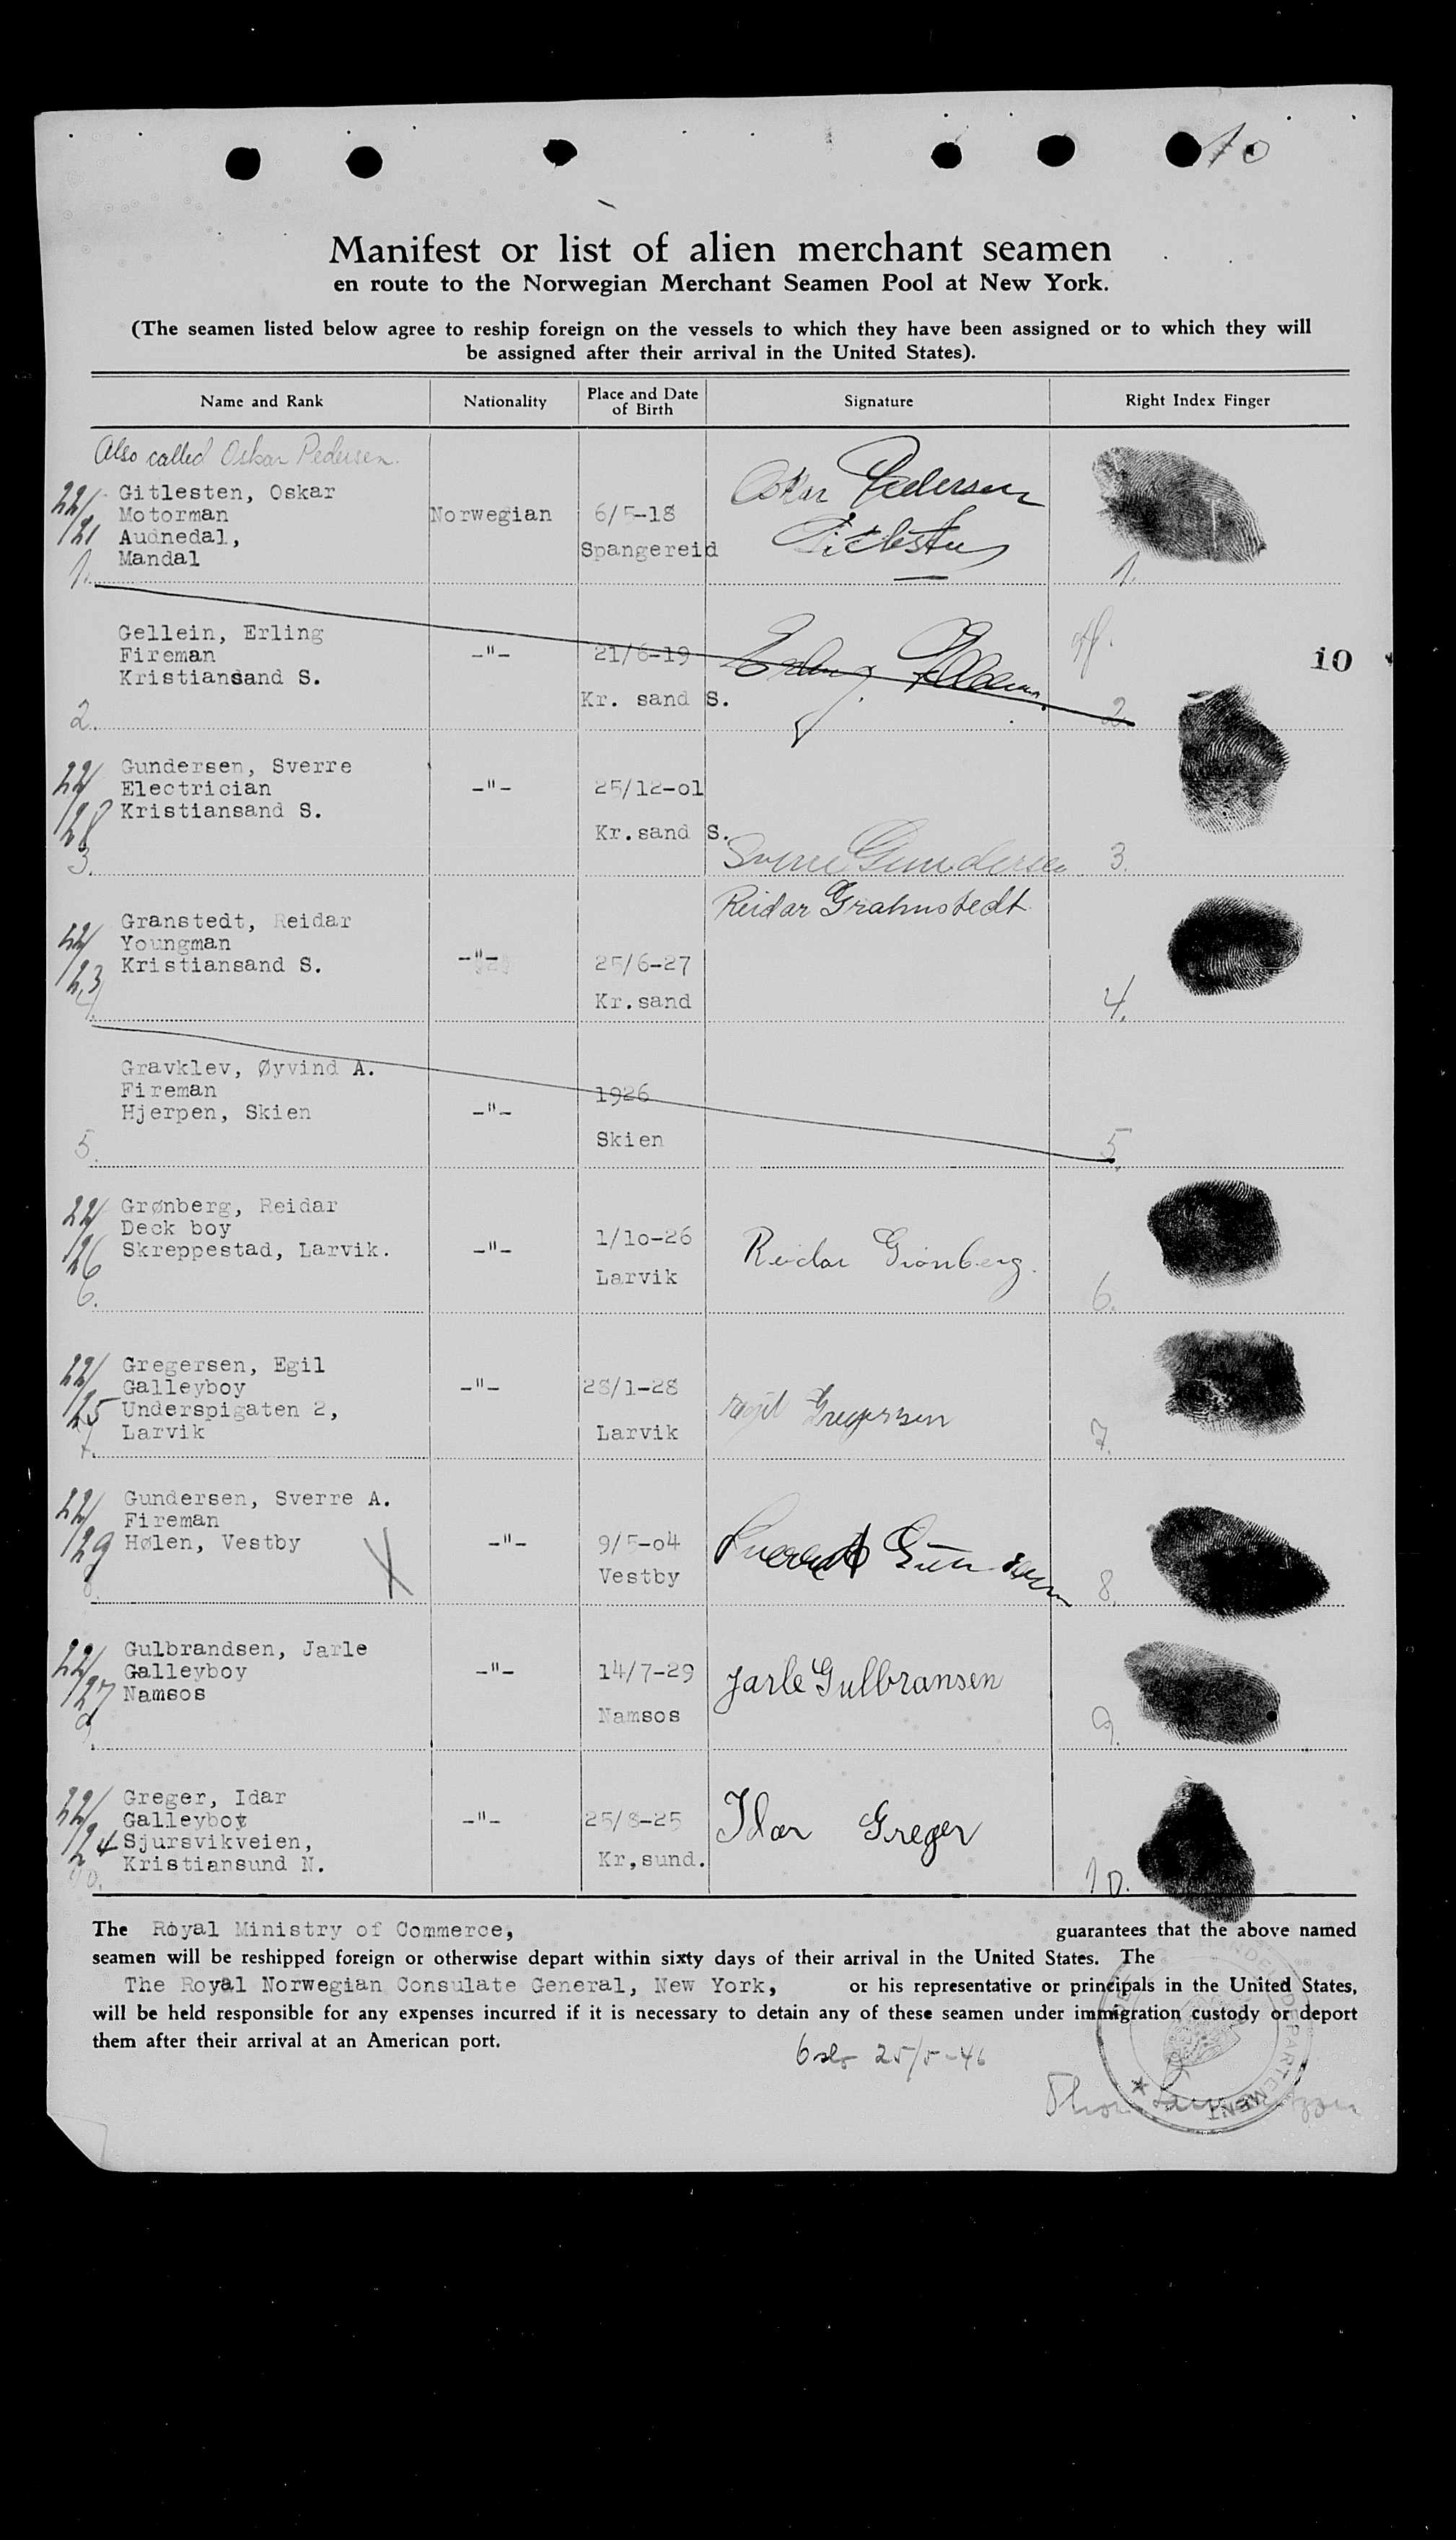 10
Manifest or list of alien merchant seamen
en route to the Norwegian Merchant Seamen Pool at New York.
(The seamen listed below agree to reship foreign on the vessels to which they have been assigned or to which they will
be assigned after their arrival in the United States).
Name and Rank Nationality Place and Date of Birth Signature Right Index Finger
Also called Oskar Pedersen.
22/ Gitlesten, Oskar Oskar Pedersen
Motorman Norwegian 6/5-18
/21 Audnedal, Spangereid Gitlesten
1. Mandal 1.
Gellein, Erling
Fireman -"- 21/6-19 Erling Gellein 10
Kristiansand S.
2. Kr. sand S. 2
22/ Gundersen, Sverre
Electrician -"- 25/12-01
/28 Kristiansand S.
Kr.sand S.
3. Sverre Gundersen 3.
Reidar Grahnstedt
22/ Granstedt, Reidar
Youngman
/23 Kristiansand S. -"- 25/6-27
4. Kr.sand 4.
Gravklev, Øyvind A.
Fireman 1926
Hjerpen, Skien -"-
5. Skien 5.
22/ Grønberg, Reidar
Deck boy
/26 Skreppestad, Larvik. -"- 1/10-26 Reidar Grønberg.
6. Larvik 6.
22/ Gregersen, Egil
Galleyboy -"- 28/1-28
/25 Underspigaten 2, Egil Gregersen
7. Larvik Larvik 7.
22/ Gundersen, Sverre A.
Fireman
/29 Hølen, Vestby X -"- 9/5-04 Sverre A Gundersen
8. Vestby 8.
22/ Gulbrandsen, Jarle
Galleyboy -"- 14/7-29 Jarle Gulbransen
/27 Namsos
9. Namsos 9.
22/ Greger, Idar
Galleyboy -"- 25/8-25 Idar Greger
/24 Sjursvikveien,
10. Kristiansund N. Kr,sund. 10.
The Royal Ministry of Commerce, guarantees that the above named
seamen will be reshipped foreign or otherwise depart within sixty days of their arrival in the United States. The
The Royal Norwegian Consulate General, New York, or his representative or principals in the United States,
will be held responsible for any expenses incurred if it is necessary to detain any of these seamen under immigration custody or deport
them after their arrival at an American port.
Oslo 25/5-46